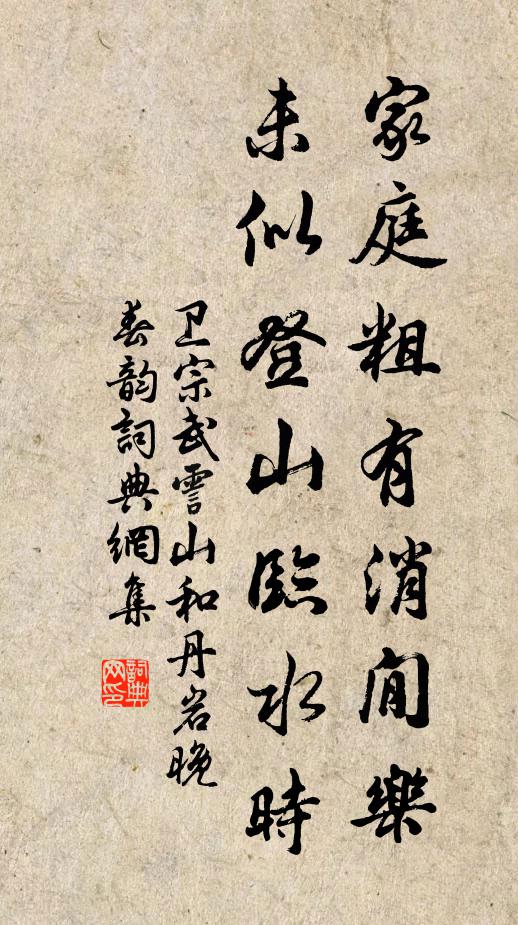 家庭粗有消閒樂
未似登山臨水時
卫宗武雪山和丹岩晚
春韵詞典網集
詞典网印